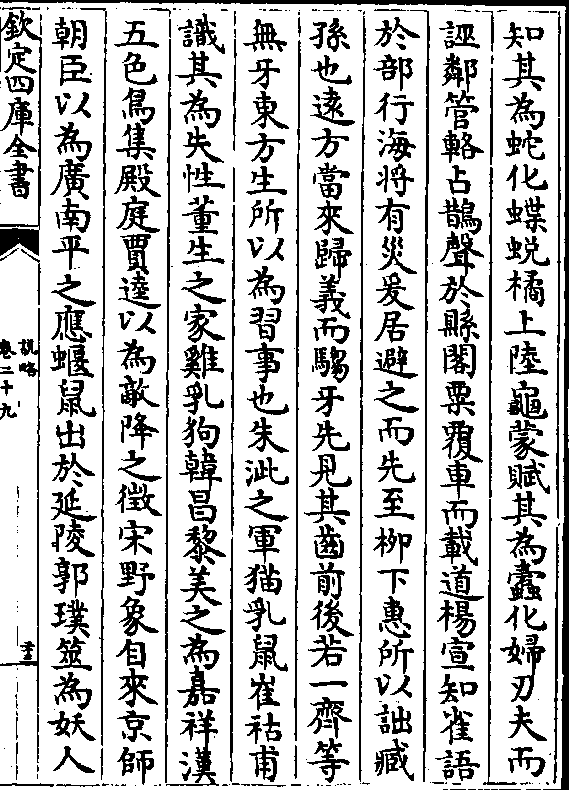 知其為蛇化蝶蜕橘上陸龜蒙賦其為蠹化婦刃夫而
誣鄰管輅占鵲聲於縣閣粟覆車而載道楊宣知雀語
於部行海将有災爰居避之而先至柳下惠所以詘臧
孫也逺方當來歸義而騶牙先見其齒前後若一齊等
無牙東方生所以為習事也朱泚之軍猫乳鼠崔祜甫
識其為失性董生之家雞乳狗韓昌黎美之為嘉祥漢
五色鳥集殿庭賈逵以為敵降之徴宋野象自來京師
朝臣以為廣南平之應蝘鼠出於延陵郭璞筮為妖人
欽定四庫全書
說略
卷二十九